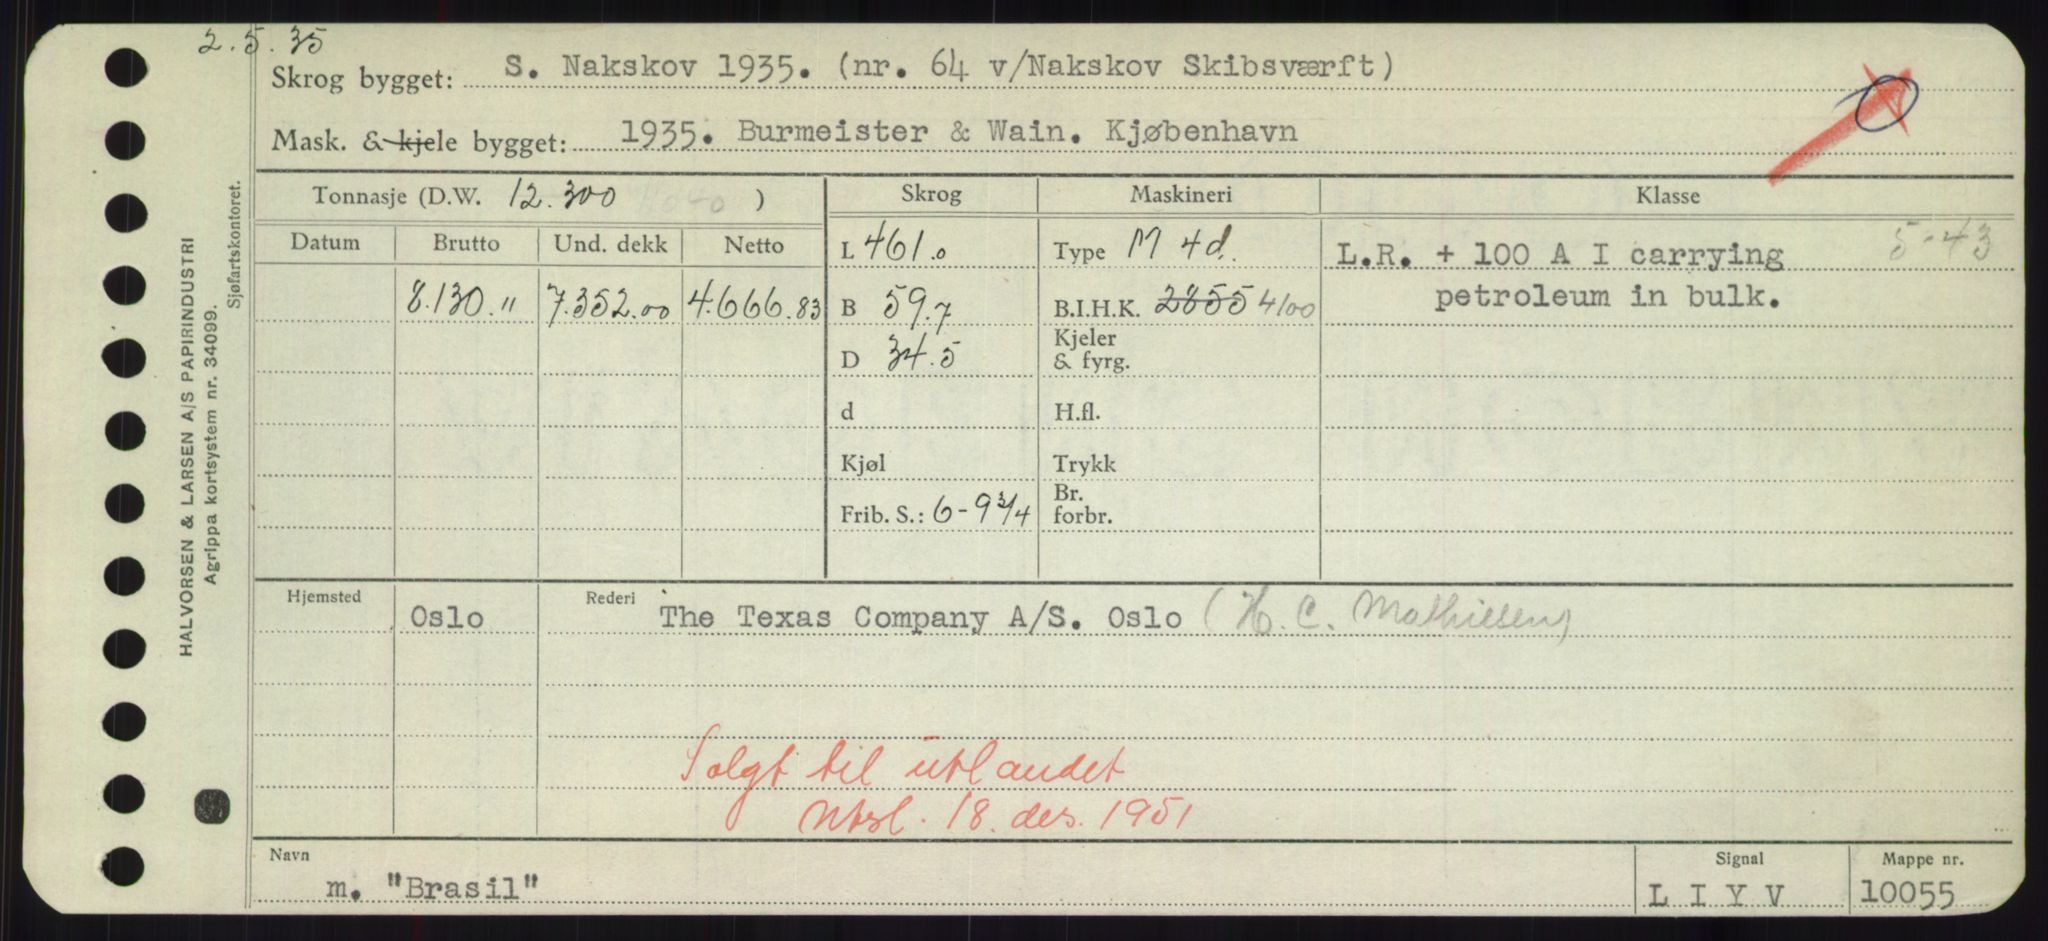 2.5.35
Skrog bygget: S. Nakskov 1935. (nr. 64 v/Nakskov Skibsværft)
Mask. & kjele bygget: 1935. Burmeister & Wain. Kjøbenhavn
HALVORSEN & LARSEN A/S PAPIRINDUSTRI
Agrippa kortsystem nr. 34099.
Sjøfartskontoret.
Tonnasje (D.W. 12.300 )
Skrog Maskineri Klasse
Datum Brutto Und. dekk Netto
L 461.0 Type M 4 d. L.R. + 100 A I carrying 5-43
8.130." 7.352.00 4.666.83 B 59.7 B.I.H.K. 2855 4100 petroleum in bulk.
D 34.5 Kjeler
& fyrg.
d H.fl.
Kjøl Trykk
Frib. S.: 6-9 3/4 Br.
forbr.
Hjemsted Oslo Rederi The Texas Company A/S. Oslo (H. C. Mathiesen)
Solgt til utlandet
18. des. 1951
Navn Signal Mappe nr.
m. "Brasil" L I Y V 10055